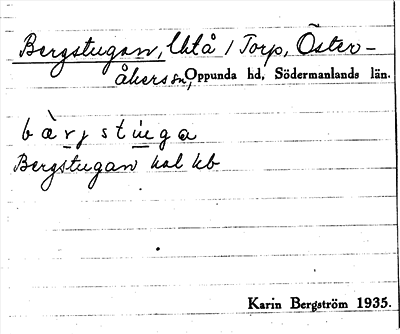 Bergstugan, Utå / Torp, Öster-
åkers sn, Oppunda hd, Södermanlands län.
bærjstuga
Bergstugan hal kb
Karin Bergström 1935.